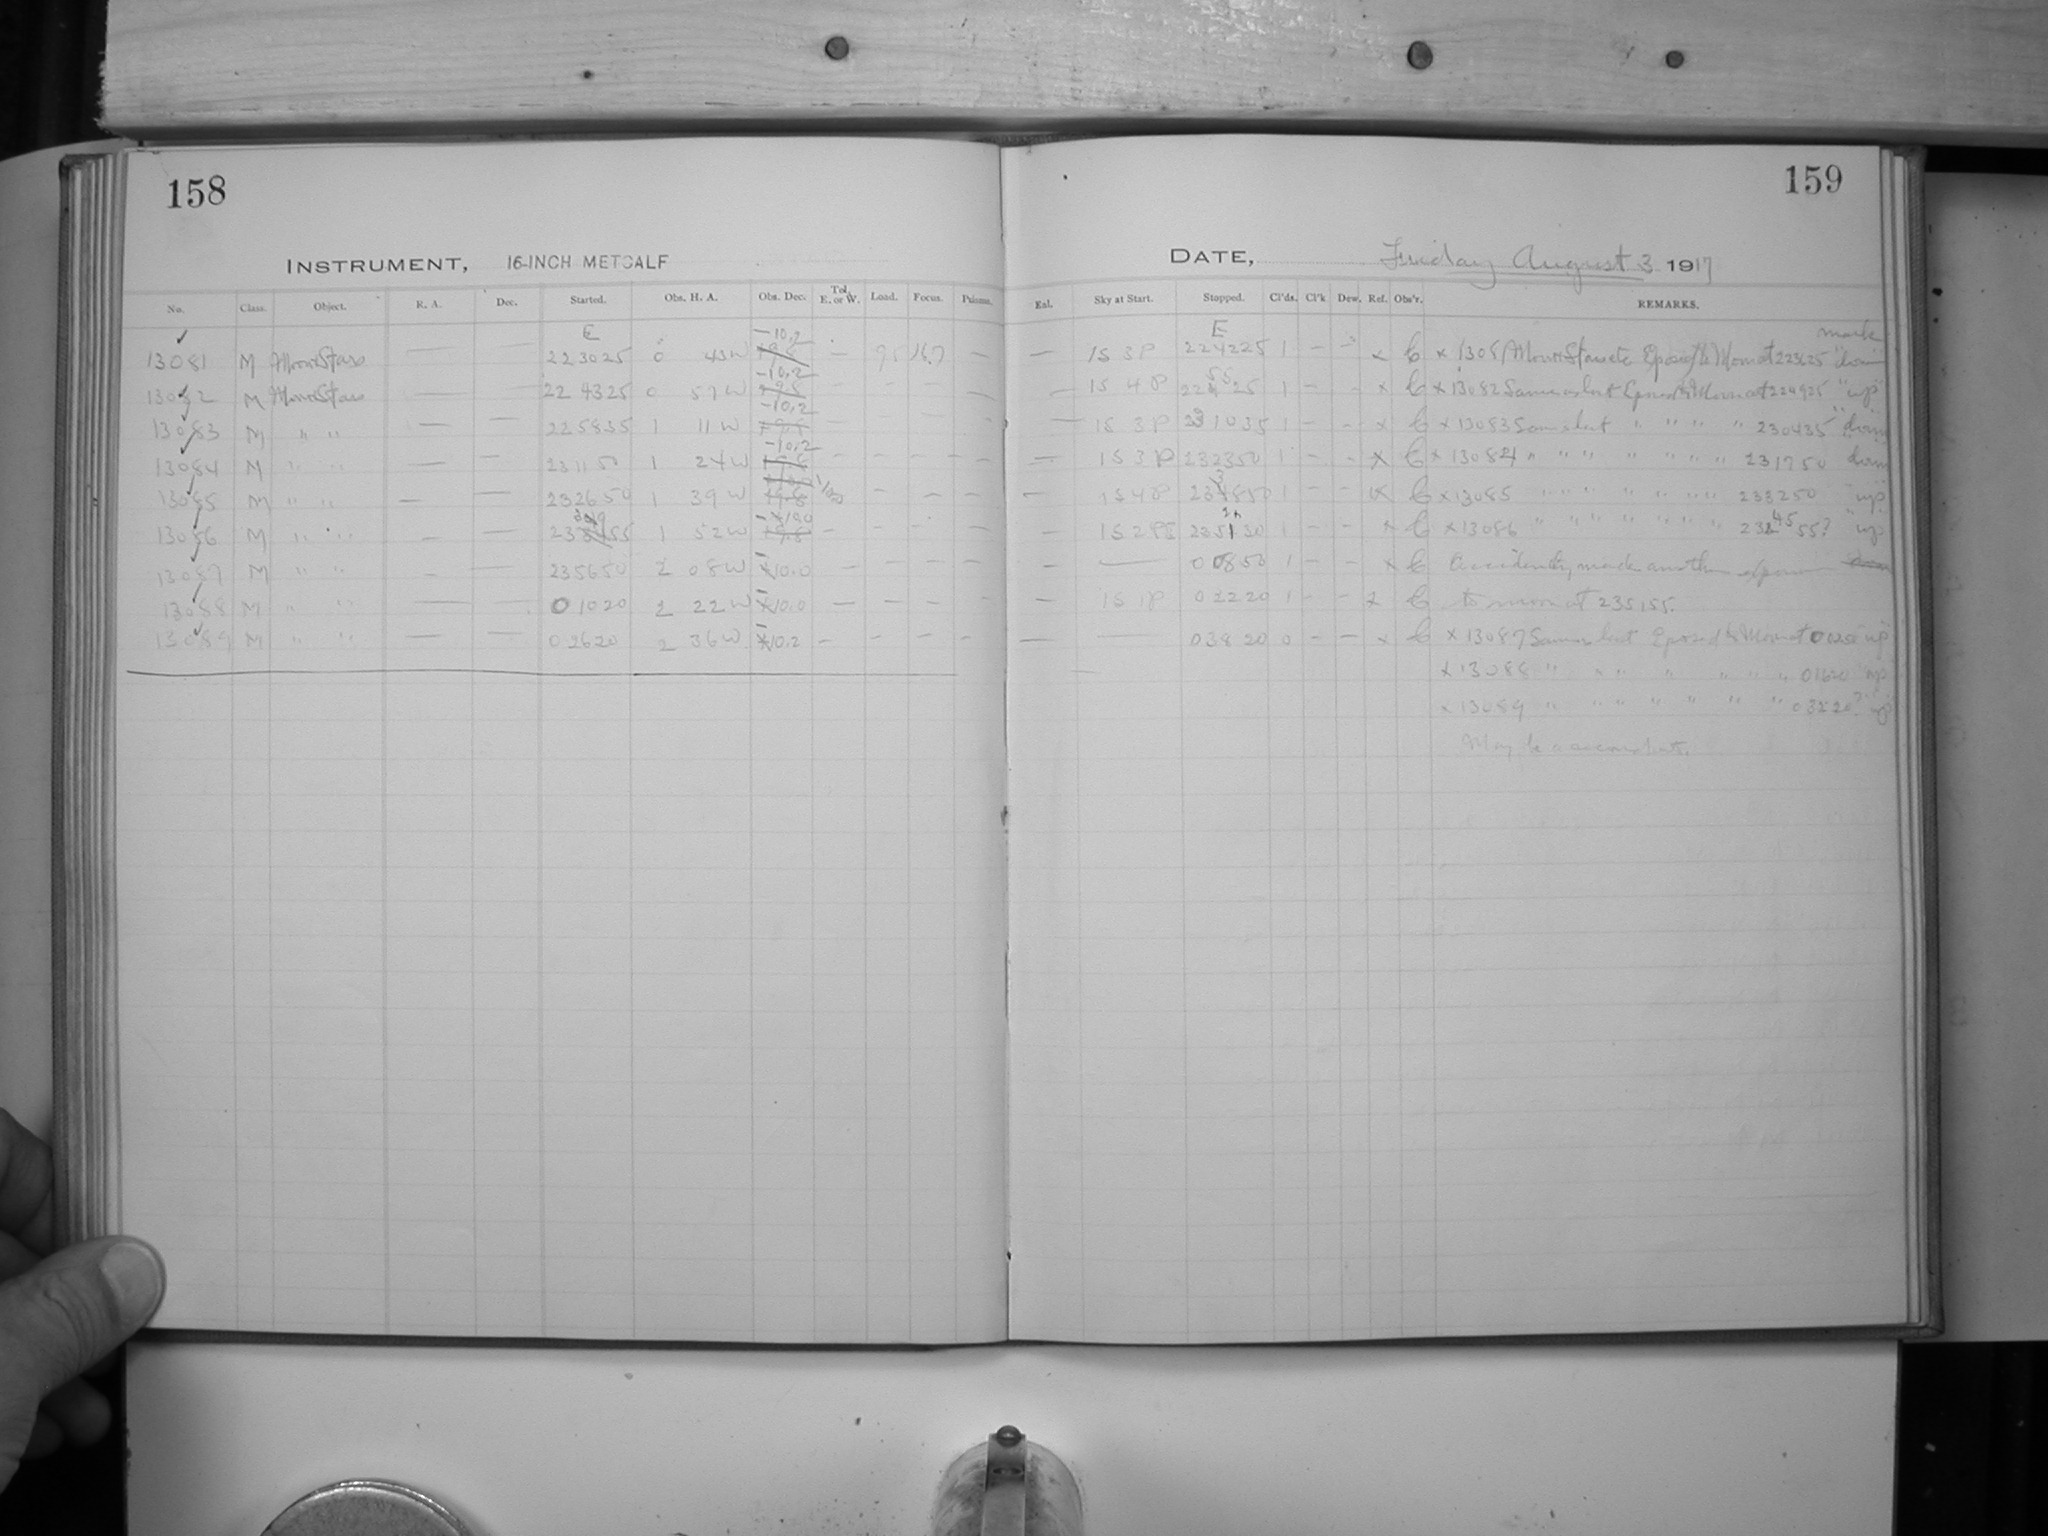 158
159
INSTRUMENT, 16-INCH METCALF
DATE, Friday August 3 1917
No. Class. Object. R. A. Dec. Started. Obs. H. A. Obs. Dec. Tel. E. or W. Load. Focus. Prisms.
Eal. Sky at Start. Stopped. Cl'ds. Cl'k Dew. Ref. Obs'r. REMARKS.
E -10.2
E mark
13081 M Moon Stars — — 223025 0 43W — 95 16.7 —
— 1S 3P 224225 1 – – x C x 13081 Moon Stars etc Exposed to Moon at 223625 "down"
-10.2
13082 M Moon Stars — — 224325 0 57W
— 1S 4P 1 – – x C x 13082 Same as last Exposed to Moon at 224925 "up"
-10.2
13083 M " " — — 225835 1 11W —
— 1S 3P 231035 1 – – x C x 13083 Same as last " " " " 230435 "down"
-10.2
13084 M " " — — 231150 1 24W – – – –
— 1S 3P 232350 1 – – x C x 13084 " " " " " " " 231750 down
13085 M " " — — 232650 1 39W – – –
— 1S4P 1 – – x C x 13085 " " " " " " 233250 "up"
13086 M " " – — 1 52W –
— 1S 2P 1 – – x C x 13086 " " " " " " "up"
13087 M " " – — 235650 2 08W -10.0 — – – –
– — 00850 1 – – x C Accidently made another exposure
13088 M " " — — 01020 2 22W -10.0 — – – –
– 1S 1P 02220 1 – – x C to moon at 235155.
13089 M " " — — 02620 2 36W -10.2 – – – – –
— — 03820 0 – – x C x 13087 Same as last Exposed to Moon at 00250 "up"
x 13088 " " " " " " 01620 "up"
x 13089 " " " " " " " 03220? "up"
May be